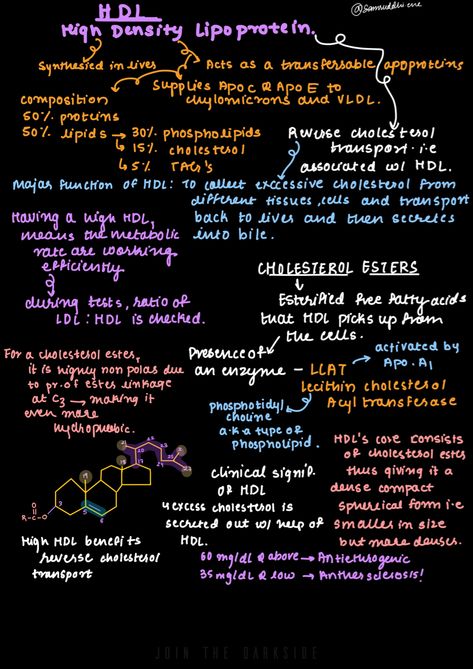 HDL
@samruddhi eve
High Density Lipoprotein.
Synthesied in livers
Acts as a transferrable apoproteins
Supplies Apo C & Apo E to
chylomicrons and VLDL.
composition
50% proteins
50% lipids → 30% phospholipids
↳ 15% cholesterol
↳ 5% TAG's
Reverse cholesterol
transport. i.e
associated w/ HDL.
Major function of HDL: To collect excessive cholesterol from
different tissues, cells and transport
back to livers and then secretes
into bile.
Having a high HDL,
means the metabolic
rate are working
efficiently
during tests, ratio of
LDL: HDL is checked.
CHOLESTEROL ESTERS
Esterified free fatty acids
that HDL picks up from
the cells.
Presence of
an enzyme - LLAT
lecithin cholesterol
Acyl transferase
activated by
Apo. A1
phosphotidyl
choline
a.k.a type of
phospholipid.
For a cholesterol ester,
it is highly non polar due
to pr. of ester linkage
at C3 → making it
even more
hydrophobic.
HDL's core consists
of cholesterol ester
thus giving it a
dense compact
spherical form i.e
smaller in size
but more denser.
21
22
23
18
20
24
25
19
17
R-C-O
O
3
5
6
High HDL benefits
reverse cholesterol
transport
clinical signif.
of HDL
↳ excess cholesterol is
secreted out w/ help of
HDL.
60 mg/dL & above → Antietherogenic
35 mg/dL & low → Anthersclerosis!
JOIN THE DARKSIDE